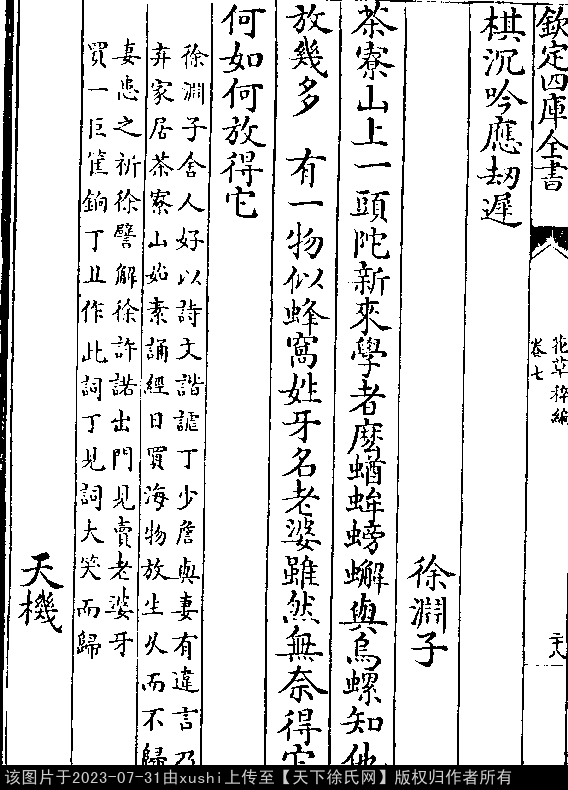 欽定四庫全書
花草稡編
卷七
二十八
棋沉吟應刼遲
徐淵子
茶寮山上一頭陀新來學者麽蝤蛑螃蠏與烏螺知他
放幾多　有一物似蜂窩姓牙名老婆雖然無奈得它
何如何放得它
徐淵子舍人好以詩文諧謔丁少詹與妻有違言乃
弃家居茶寮山茹素誦經日買海物放生久而不歸
妻患之祈徐譬解徐許諾出門見賣老婆牙
買一巨篚餉丁且作此詞丁見詞大笑而歸
天機
该图片于2023-07-31由xushi上传至【天下徐氏网】版权归作者所有